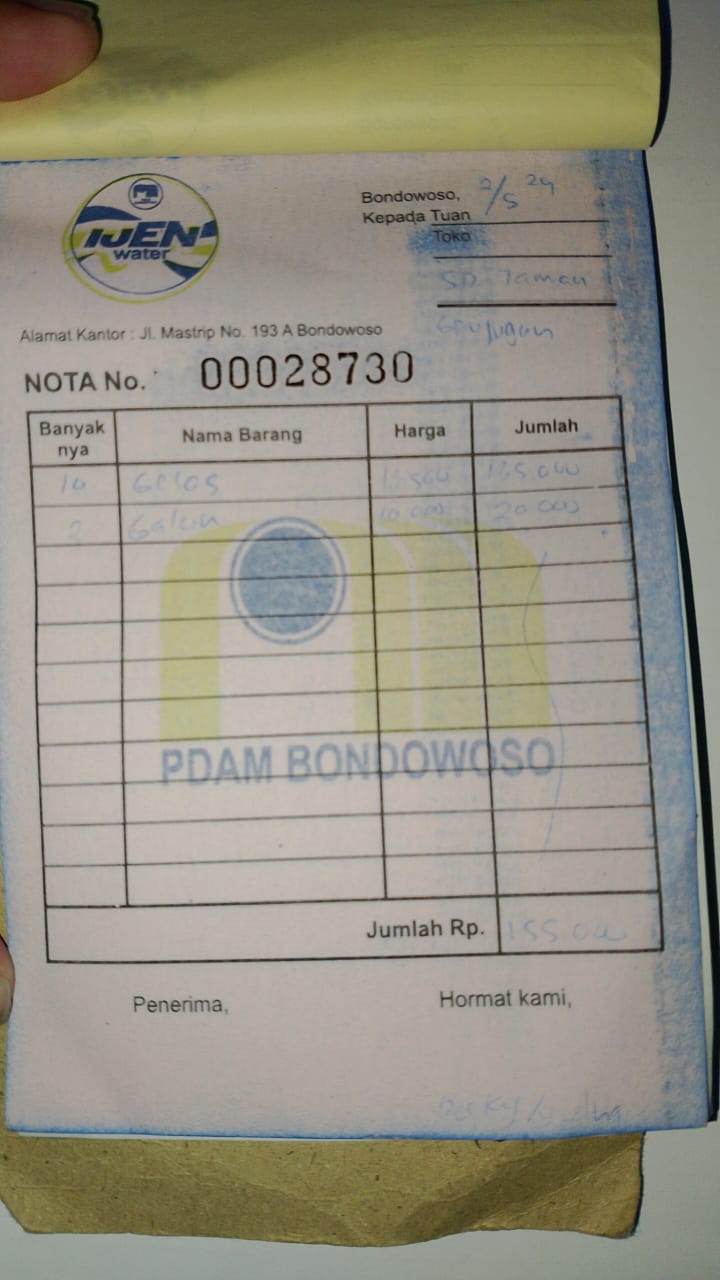 IJEN
water
Bondowoso, 2/5 24
Kepada Tuan
Toko
SD Taman
Grujugan
Alamat Kantor : Jl. Mastrip No. 193 A Bondowoso
NOTA No. 00028730
Banyak nya Nama Barang Harga Jumlah
10 Gelas 13.500 135.000
2 Galon 10.000 20.000
PDAM BONDOWOSO
Jumlah Rp. 155.000
Penerima, Hormat kami,